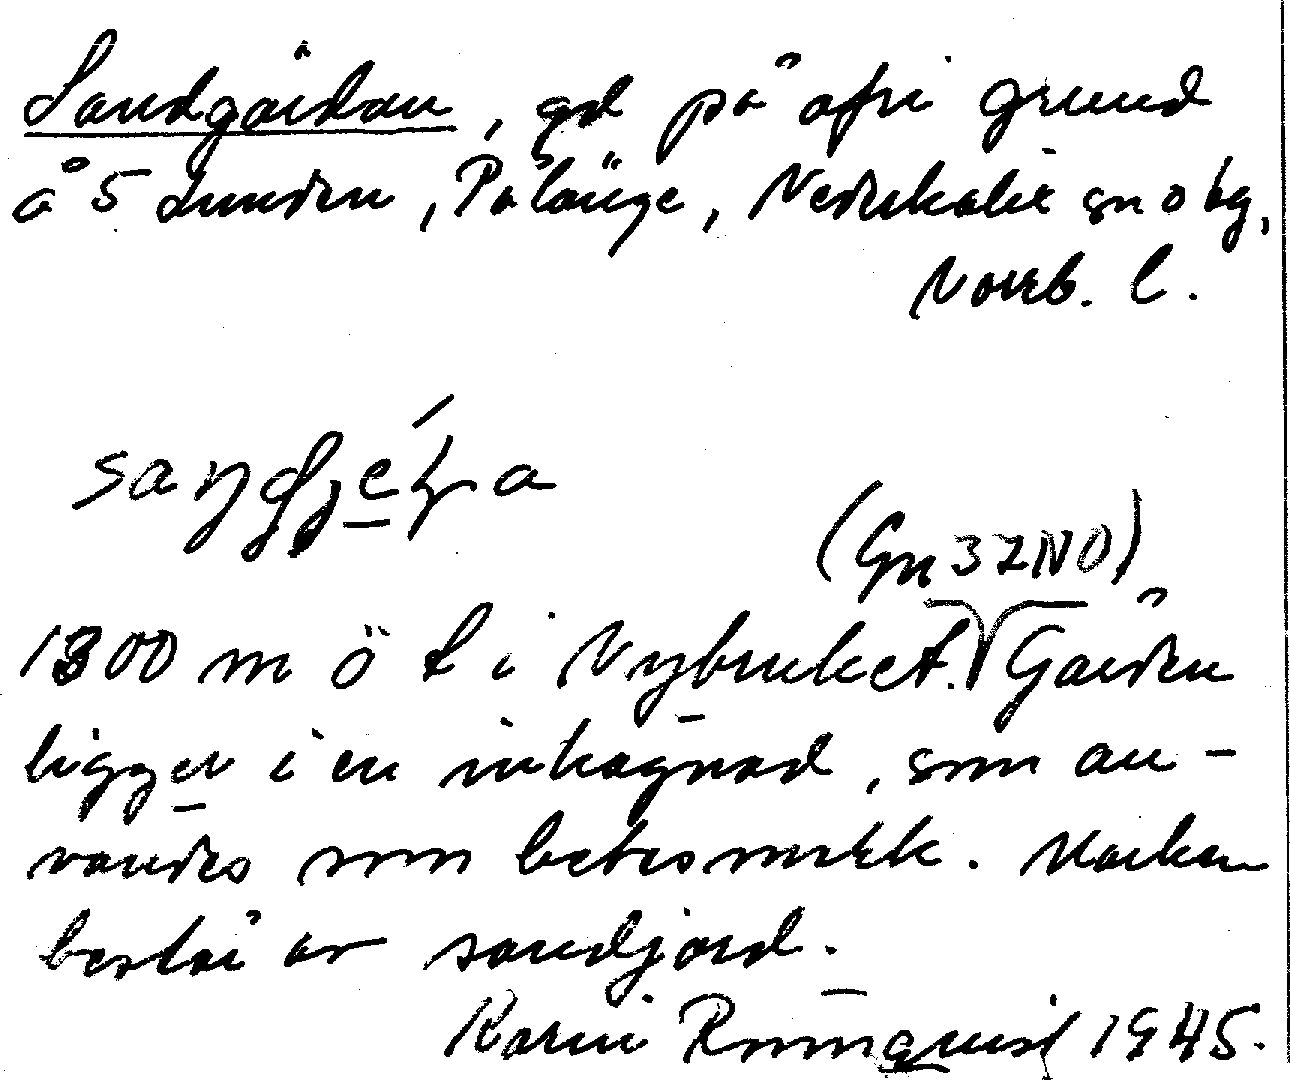 Sandgårdan, gd på ofri grund
å 5 Lunden, Pålänge, Nederkalix sn o bg,
Norrb. l.
(Gn 32 NO)
1300 m ö t i Nybruket. Gården
ligger i en inhägnad, som an-
vändes som betesmark. Marken
består av sandjord.
Karin Rommquist 1945.